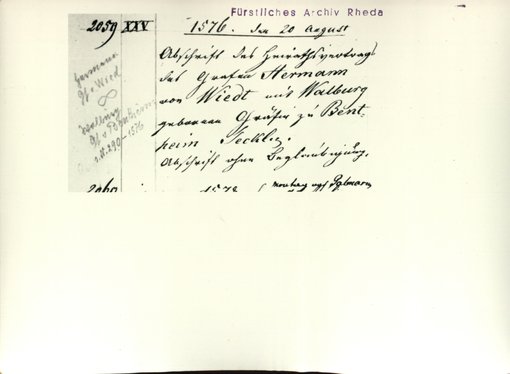 Fürstliches Archiv Rheda
2059 XXV 1576. den 20 August
Abschrift des Heirathsvertrags
des Grafen Hermann
von Wiedt mit Walburg
geborenen Gräfin zu Bent-
heim Tecklbg.
Abschrift ohne Beglaubigung.
Hermann
Gf. v. Wied
∞
Walburg
Gf. v. Bentheim
2060 1578